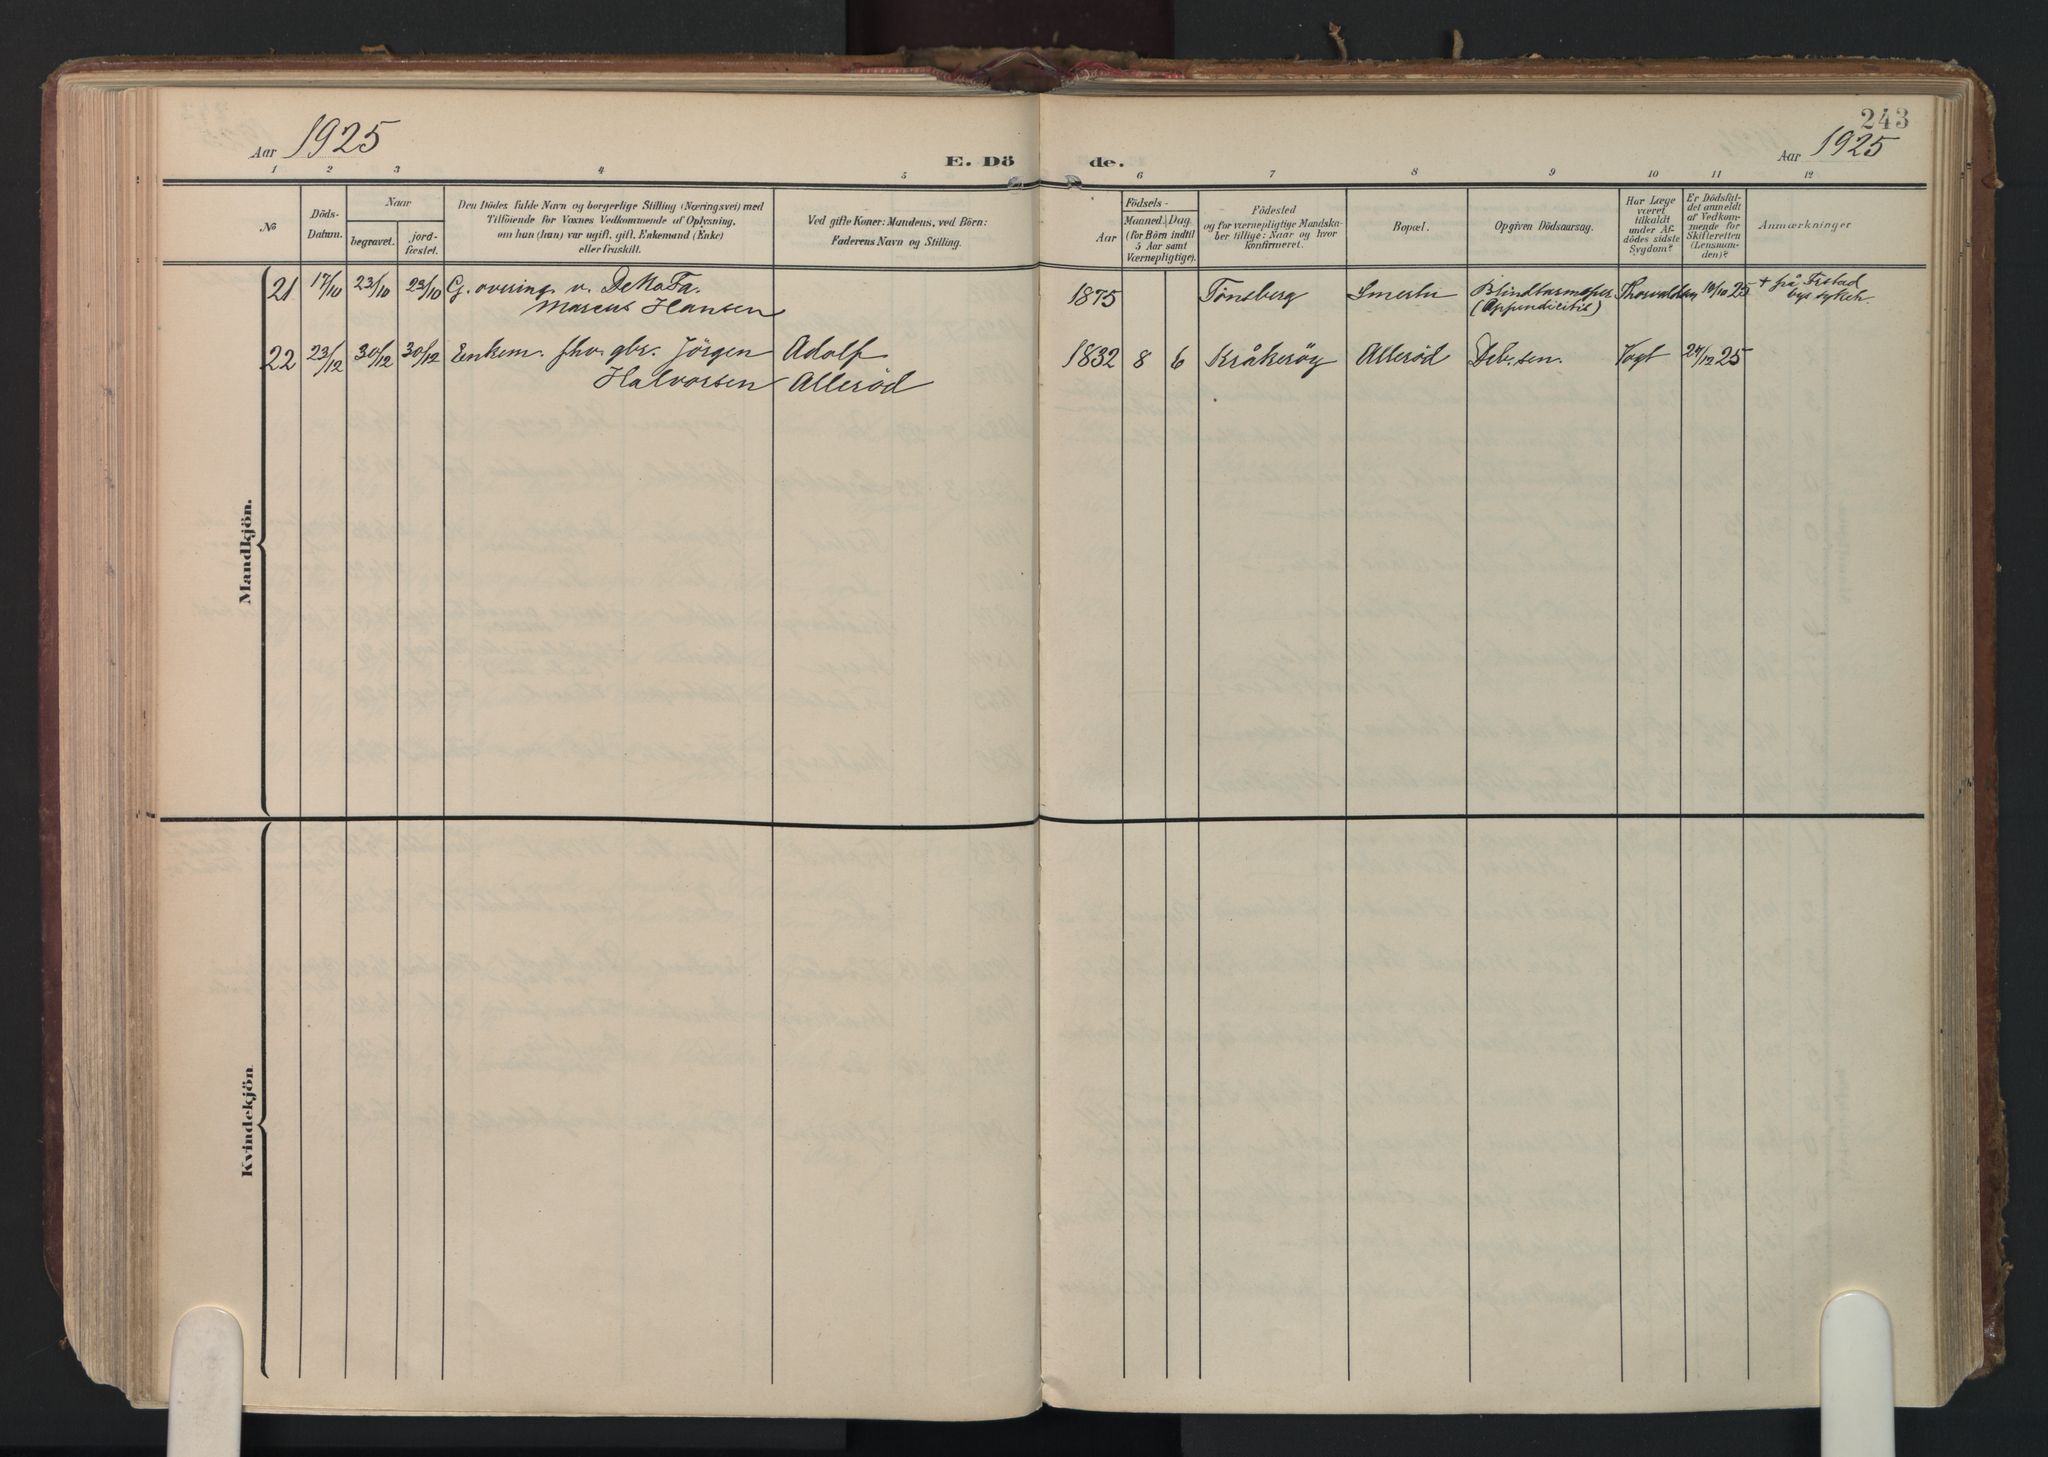 243
Aar 1925
E. Dö de.
Aar 1925
1 2 3 4 5 6 7 8 9 10 11 12
No
Döds-
Datum.
Naar
begravet.
jord-
fæstet.
Den Dödes fulde Navn og borgerlige Stilling (Næringsvei) med
Tilföiende for Voxnes Vedkommende af Oplysning,
om han (hun) var ugift, gift, Enkemand (Enke)
eller fraskilt.
Ved gifte Koner: Mandens, ved Börn:
Faderens Navn og Stilling.
Födsels-
Aar
Maaned. Dag.
(for Börn indtil
5 Aar samt
Værnepligtige).
Födested
og for værnepligtige Mandska-
ber tillige: Naar og hvor
konfirmeret.
Bopæl.
Opgiven Dödsaarsag.
Har Læge
været
tilkaldt
under Af-
dödes sidste
Sygdom?
Er Dödsfal-
det anmeldt
af Vedkom-
mende for
Skifteretten
(Lensman-
den)?
Anmærkninger
Mandkjön.
21 17/10 23/10 23/10 G. overing. v. DeNoFa.
Marcus Hansen
1875 Tönsberg
(Appendicitis)
10/10 25
+ på Frstad
bys sykeh.
22 23/12 30/12 30/12 Enkem. fhv. gbr. Jörgen
Halvorsen
Adolf
Alleröd
1832 8 6 Kråkeröy Alleröd Deb. sen. Vogt 24/12 25
Kvindekjön